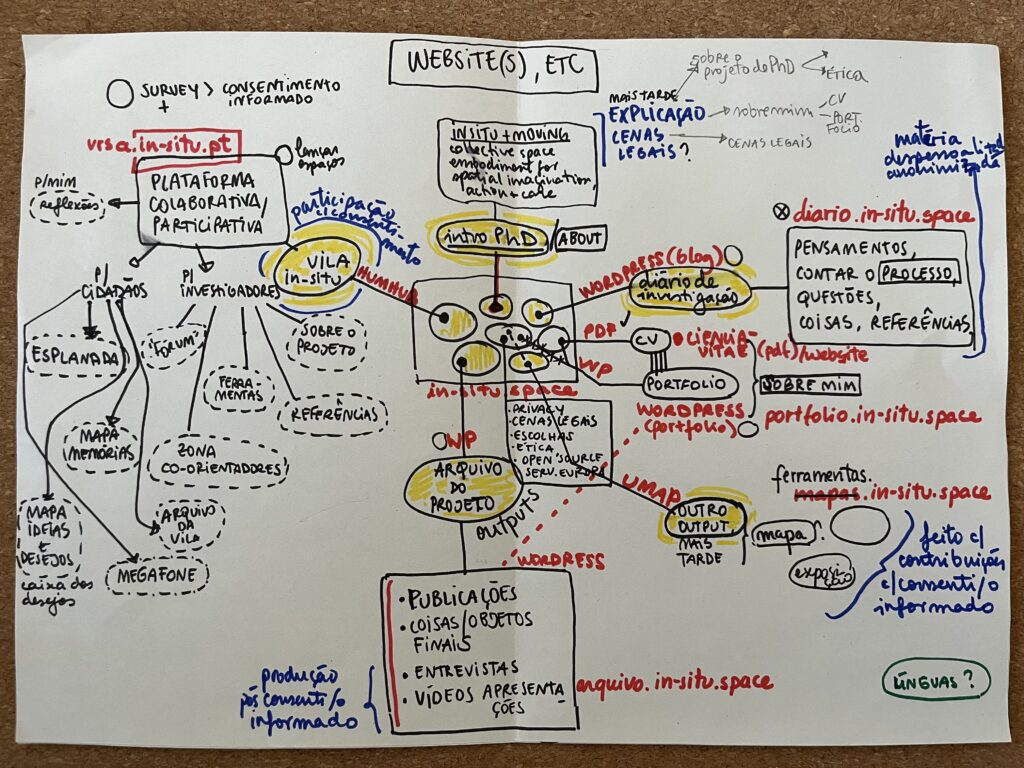 WEBSITE(S), ETC
SURVEY > CONSENTIMENTO
+ INFORMADO
vrsa.in-situ.pt
lançar
espaços
PLATAFORMA
COLABORATIVA/
PARTICIPATIVA
P/MIM
reflexões
P/
CIDADÃOS
P/
INVESTIGADORES
ESPLANADA
"FORUM"
SOBRE O
PROJETO
FERRA-
MENTAS
REFERÊNCIAS
MAPA
MEMÓRIAS
ZONA
CO-ORIENTADORES
MAPA
IDEIAS
E
DESEJOS
caixa dos
desejos
ARQUIVO
DA
VILA
MEGAFONE
participação
c/ consenti-
mento
VILA
in-situ
HUMHUB
IN SITU + MOVING
collective space
embodiment for
spatial imagination,
action + care
intro PhD
/ABOUT
MAIS TARDE
EXPLICAÇÃO
CENAS
LEGAIS?
sobre o
projeto do PhD
ÉTICA
sobre mim
CV
PORT.
FOLIO
CENAS LEGAIS
matéria
anonimizada
diario.in-situ.space
WORDPRESS (blog)
diário de
investigação
PENSAMENTOS,
CONTAR O PROCESSO,
QUESTÕES,
COISAS, REFERÊNCIAS,
in-situ.space
PDF
CV
CIENCIA-
VITAE (pdf)/website
WP
PORTFOLIO
SOBRE MIM
WORDPRESS
(portfolio)
portfolio.in-situ.space
· PRIVACY
· CENAS LEGAIS
· ESCOLHAS
· ÉTICA
· OPEN SOURCE
SERV. EUROPA
WP
ARQUIVO
DO
PROJETO
outputs
UMAP
OUTRO
OUTPUT,
MAIS
TARDE
ferramentas
mapas.in-situ.space
mapa?
exposição
feito c/
contribuições
c/consenti/o
informado
WORDRESS
• PUBLICAÇÕES
• COISAS/OBJETOS
FINAIS
• ENTREVISTAS
• VÍDEOS APRESENTA
ÇÕES
produção
pós consenti/o
informado
arquivo.in-situ.space
LÍNGUAS?